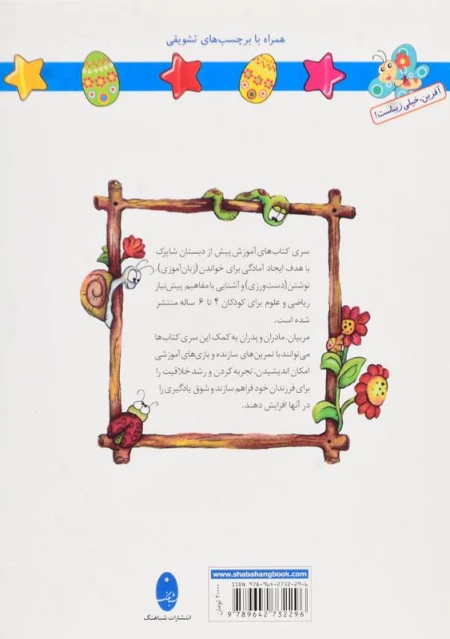 همراه با برچسب‌های تشویقی
آفرین، خیلی زیباست!
سری کتاب‌های آموزش پیش از دبستان شاپرک
با هدف ایجاد آمادگی برای خواندن (زبان‌آموزی)،
نوشتن (دست‌ورزی) و آشنایی با مفاهیم پیش‌نیاز
ریاضی و علوم برای کودکان ۴ تا ۶ ساله منتشر
شده است.
مربیان، مادران و پدران به کمک این سری کتاب‌ها
می‌توانند با تمرین‌های سازنده و بازی‌های آموزشی
امکان اندیشیدن، تجربه کردن و رشد خلاقیت را
برای فرزندان خود فراهم سازند و شوق یادگیری را
در آنها افزایش دهند.
www.shabahangbook.com
ISBN 978-964-2732-29-6
9 789642 732296
تومان
انتشارات شباهنگ